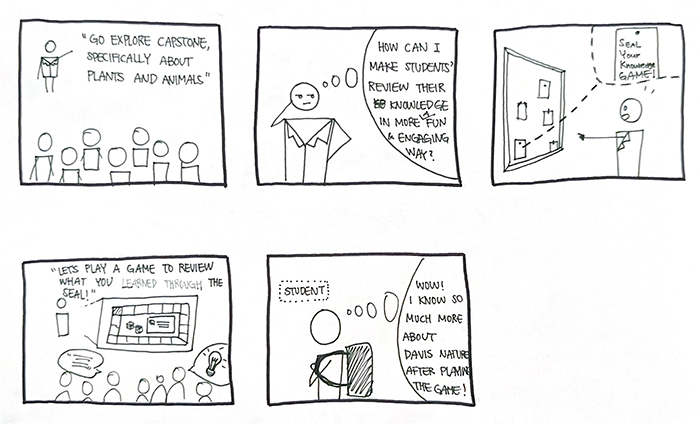 "GO EXPLORE CAPSTONE,
SPECIFICALLY ABOUT
PLANTS AND ANIMALS"
HOW CAN I
MAKE STUDENTS'
REVIEW THEIR
KNOWLEDGE
IN MORE FUN
& ENGAGING
WAY?
SEAL
YOUR
KNOWLEDGE
GAME!
"LETS PLAY A GAME TO REVIEW
WHAT YOU LEARNED THROUGH THE
SEAL!"
STUDENT
WOW!
I KNOW SO
MUCH MORE
ABOUT
DAVIS NATURE
AFTER PLAYING
THE GAME!